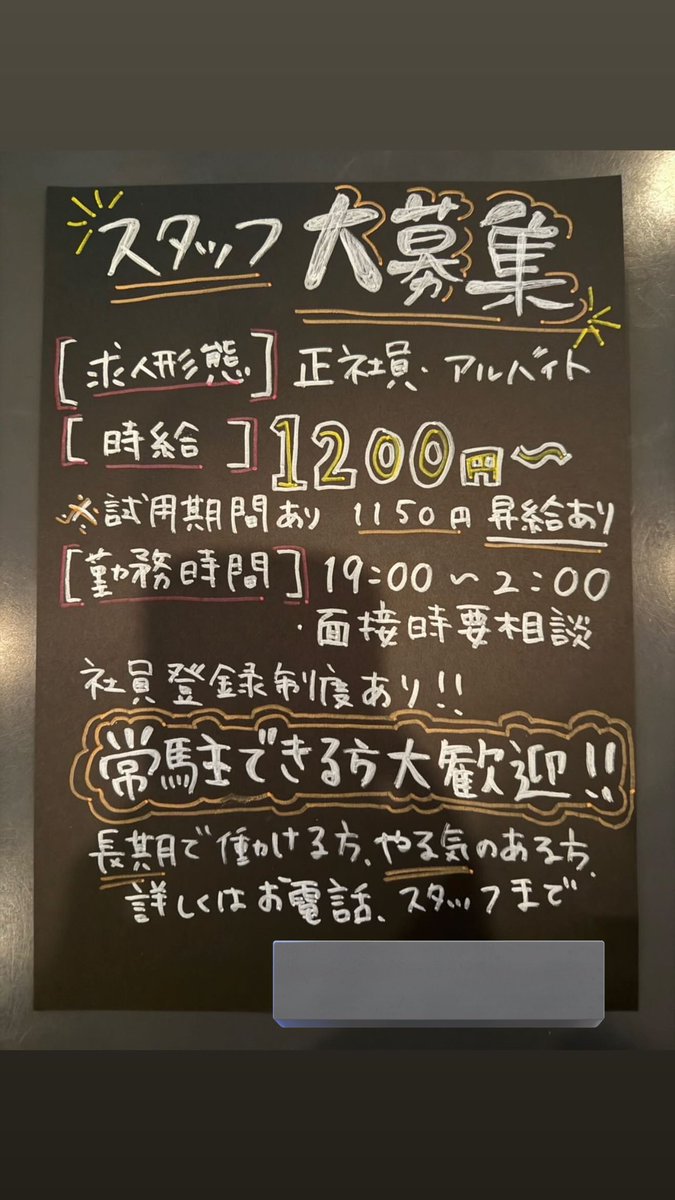 スタッフ 大募集
[求人形態] 正社員・アルバイト
[時給] 1200円〜
※試用期間あり 1150円 昇給あり
[勤務時間] 19:00〜2:00
・面接時要相談
社員登録制度あり!!
常駐できる方大歓迎!!
長期で働ける方、やる気のある方、
詳しくはお電話、スタッフまで